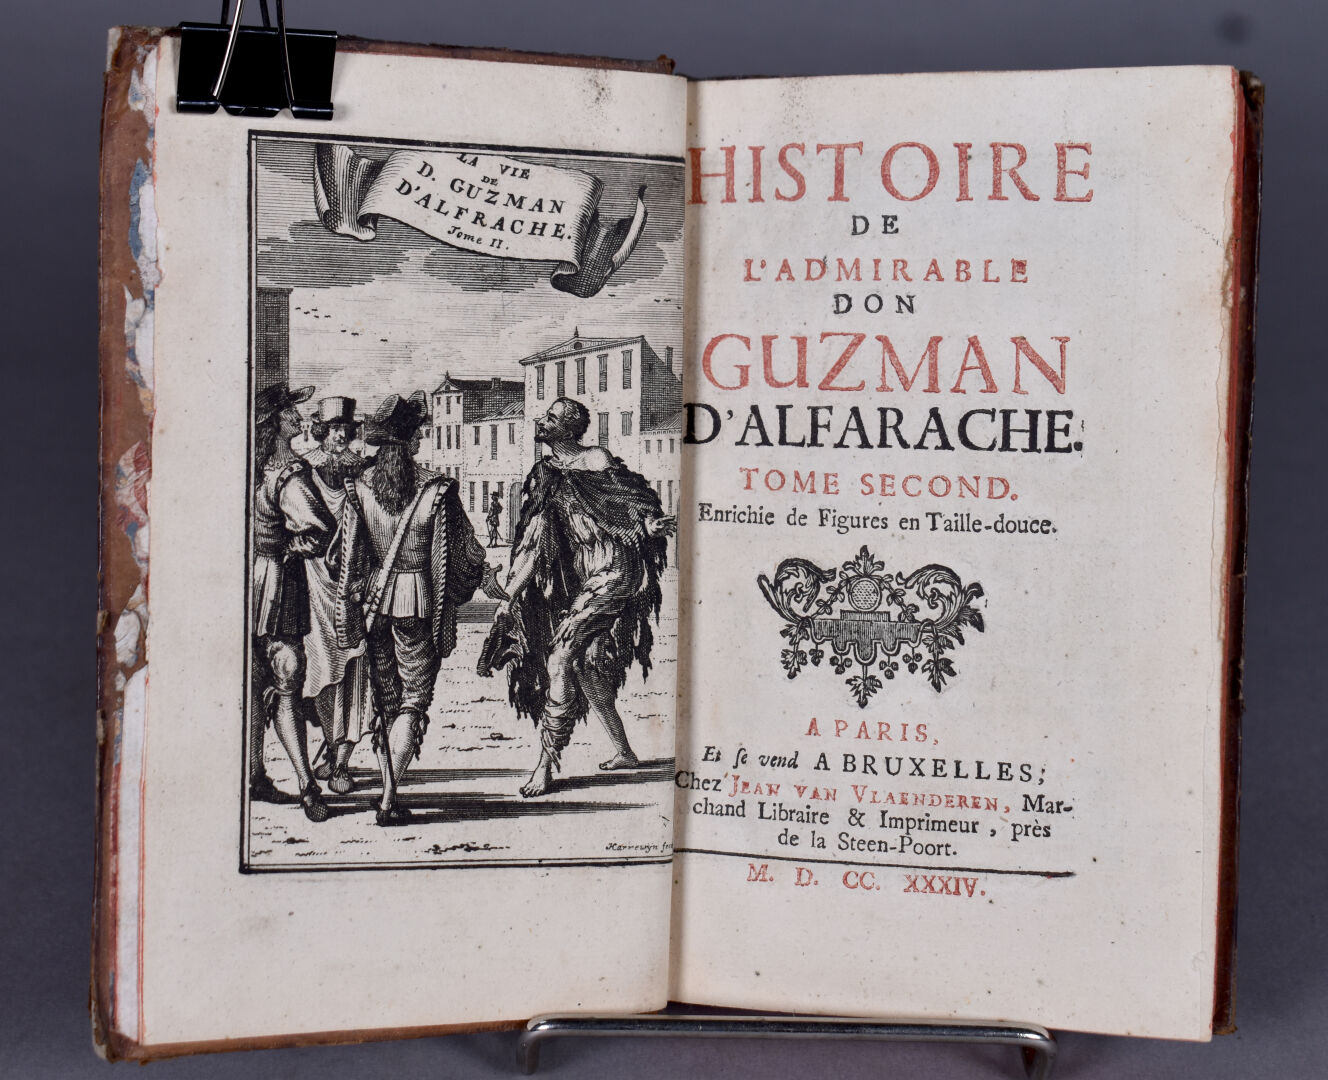 LA VIE
DE
D. GUZMAN
D'ALFRACHE.
Tome II.
Harrewyn fec
HISTOIRE
DE
L'ADMIRABLE
DON
GUZMAN
D'ALFARACHE.
TOME SECOND.
Enrichie de Figures en Taille-douce.
A PARIS,
Et ſe vend A BRUXELLES;
Chez JEAN VAN VLAENDEREN, Mar-
chand Libraire & Imprimeur, près
de la Steen-Poort.
M. D. CC. XXXIV.